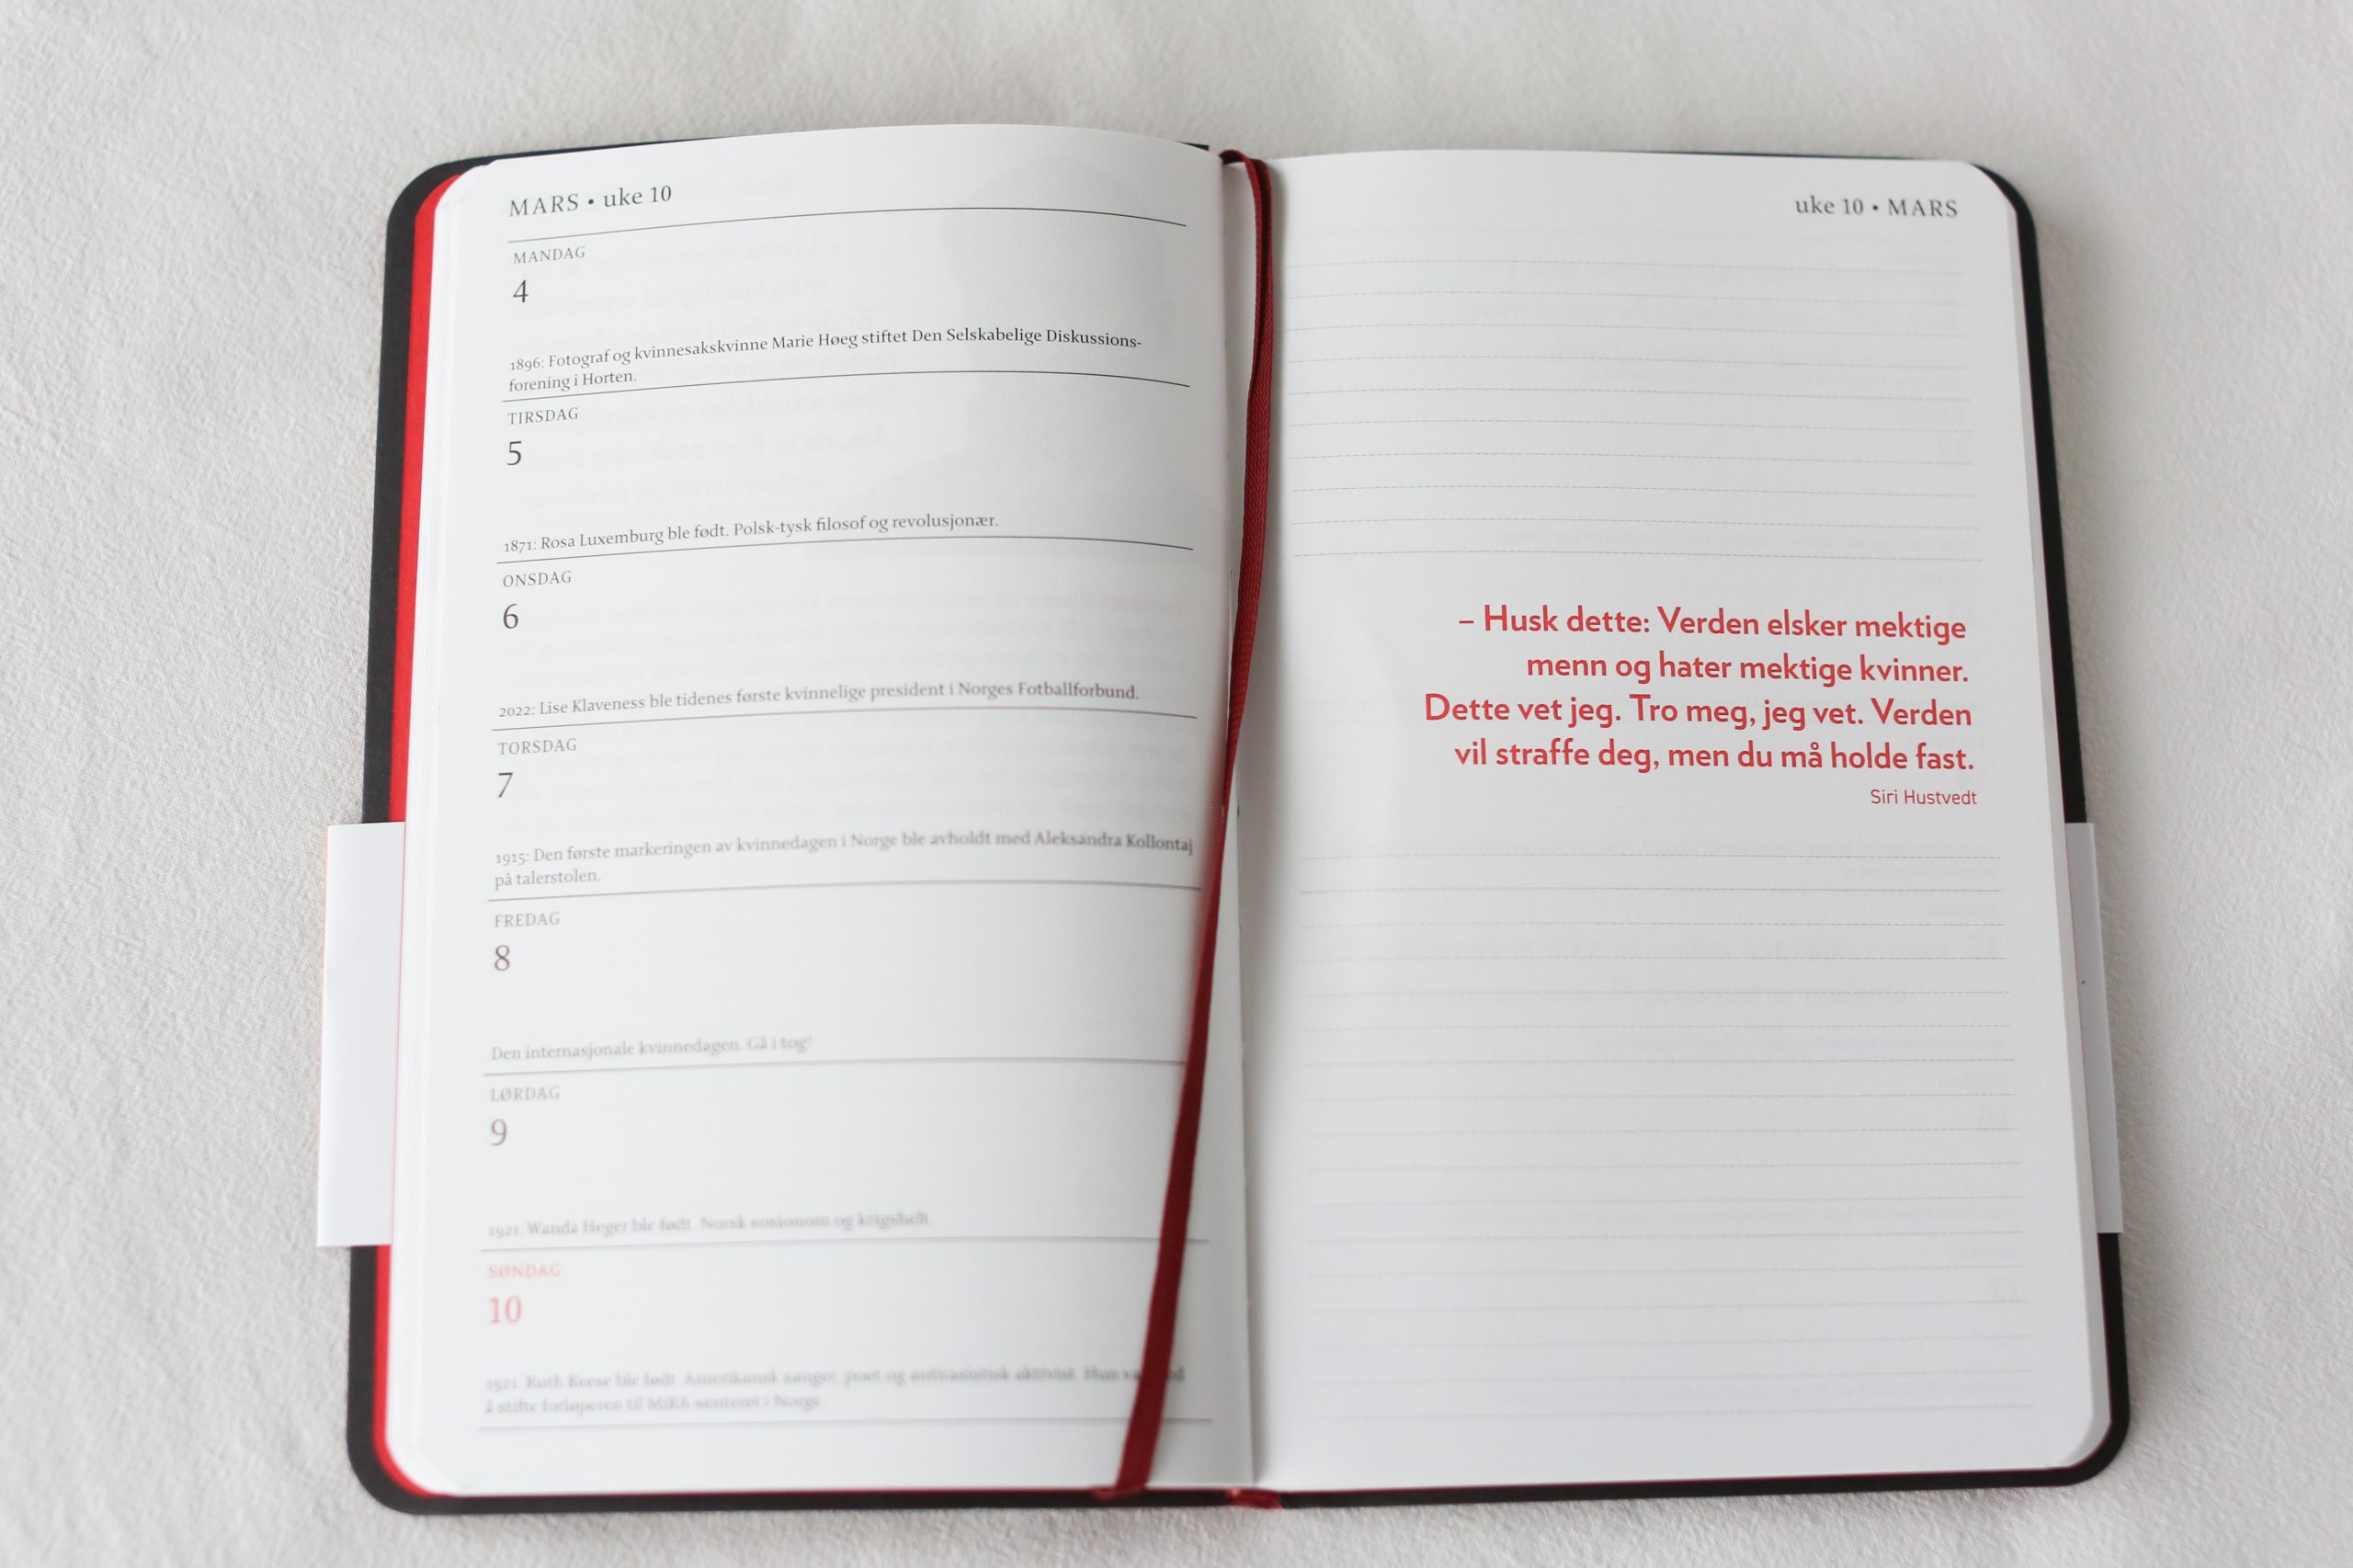 MARS • uke 10
MANDAG
4
1896: Fotograf og kvinnesakskvinne Marie Høeg stiftet Den Selskabelige Diskussions-
forening i Horten.
TIRSDAG
5
1871: Rosa Luxemburg ble født. Polsk-tysk filosof og revolusjonær.
ONSDAG
6
2022: Lise Klaveness ble tidenes første kvinnelige president i Norges Fotballforbund.
TORSDAG
7
1915: Den første markeringen av kvinnedagen i Norge ble avholdt med Aleksandra Kollontaj
på talerstolen.
FREDAG
8
Den internasjonale kvinnedagen. Gå i tog!
LØRDAG
9
1921: Wanda Heger ble født. Norsk sosionom og krigshelt.
SØNDAG
10
1921: Ruth Reese ble født. Amerikansk sanger, poet og antirasistisk aktivist. Hun
å stifte forløperen til MiRA-senteret i Norge.
uke 10 • MARS
– Husk dette: Verden elsker mektige
menn og hater mektige kvinner.
Dette vet jeg. Tro meg, jeg vet. Verden
vil straffe deg, men du må holde fast.
Siri Hustvedt